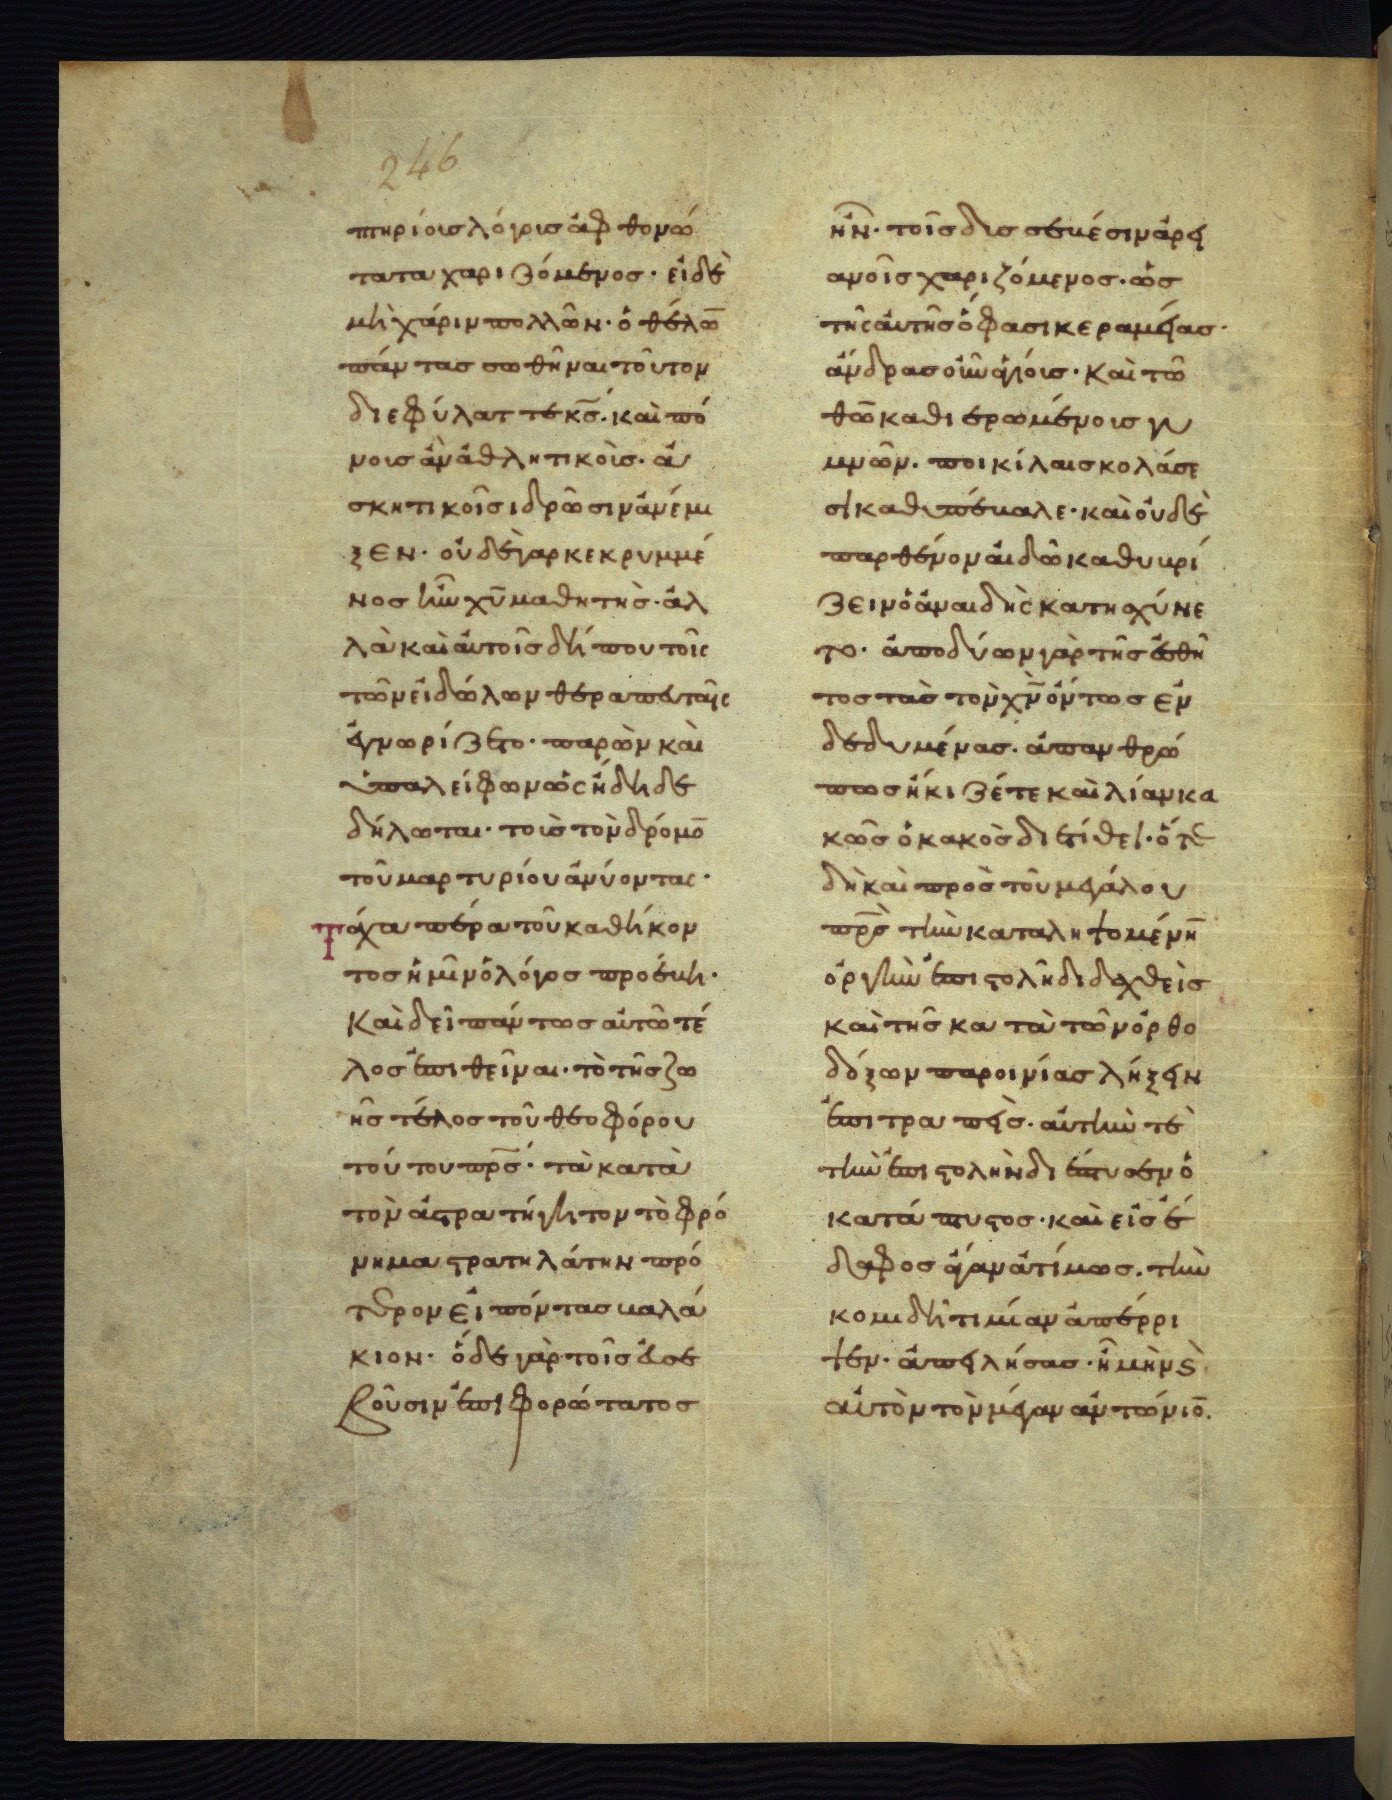 246
πηρίοις λόγοις ἀφθονώ
τατα χαριζόμενος· εἰ δὲ
μὴ χάριν πολλῶν· ὁ θέλω̅
πάντας σωθῆναι τοῦτον
διεφύλαττε κ̅ς̅· καὶ πό
νοις ἀναθλητικοῖς· ἀ
σκητικοῖς ἱδρῶσιν ἀνέμι
ξεν· οὐδὲ γὰρ κεκρυμμέ
νος ἦν χ̅υ̅ μαθητής· ἀλ
λὰ καὶ αὐτοῖς δήπου τοῖς
τῶν εἰδώλων θεραπευταῖς
ἐγνωρίζετο· παρὼν καὶ
ὑπαλείφων ὡς ἤδη δε
δήλωται· τοὺς τὸν δρόμο̅
τοῦ μαρτυρίου ἀνύοντας·
Τάχα πέρα τοῦ καθήκον
τος ἡμῖν ὁ λόγος προέβη·
Καὶ δεῖ πάντως αὐτῶ τέ
λος ἐπιθεῖναι· τὸ τῆς ζω
ῆς τέλος τοῦ θεοφόρου
τούτου π̅ρ̅ς̅· τὰ κατὰ
τὸν ἀστρατήγητον τὸ φρό
νημα στρατηλάτην πρό
τερον εἰπόντας βαλά
κιον· ὅδε γὰρ τοῖς εὐσε
βοῦσιν ἐπιφορώτατος
ἦν· τοῖς δυσσεβέσιν ἀρει
ανοῖς χαριζόμενος· ὡς
τῆς αὐτῆς ὅ φασι κεραμείας·
ἄνδρας οὖν ἁγίοις· καὶ τῶ
θ̅ω̅ καθιερωμένοις γυ
μνῶν· ποικίλαις κολάσε
σι καθυπέβαλε· καὶ οὐδὲ
παρθένον αἰδῶ καθυβρί
ζειν ὁ ἀναιδὴς κατησχύνε
το· ἀποδύων γὰρ τῆς ἐσθῆ
τος τὰς τὸν χ̅ν̅ ὄντως ἐν
δεδυμένας· ἀπανθρώ
πως ᾐκίζετε καὶ λίαν κα
κῶς ὁ κακὸς διετίθει· ὅτε
δὴ καὶ πρὸς τοῦ μεγάλου
π̅ρ̅ς̅ τὴν καταληψομένη̅
ὀργὴν ἐπιστολῆ διδαχθεὶς
καὶ τῆς κατὰ τῶν ὀρθο
δόξων παροινίας λήξειν
ἐπιτραπείς· αὐτήν τε
τὴν ἐπιστολὴν διέπτυσεν ὁ
κατάπτυστος· καὶ εἰς ἔ
δαφος ἄγαν ἀτίμως· τὴν
κομιδῆ τιμίαν ἀπέρρι
ψεν· ἀπειλήσας· ἦ μὴν κ
αὐτὸν τὸν μέγαν ἀντώνιο̅·